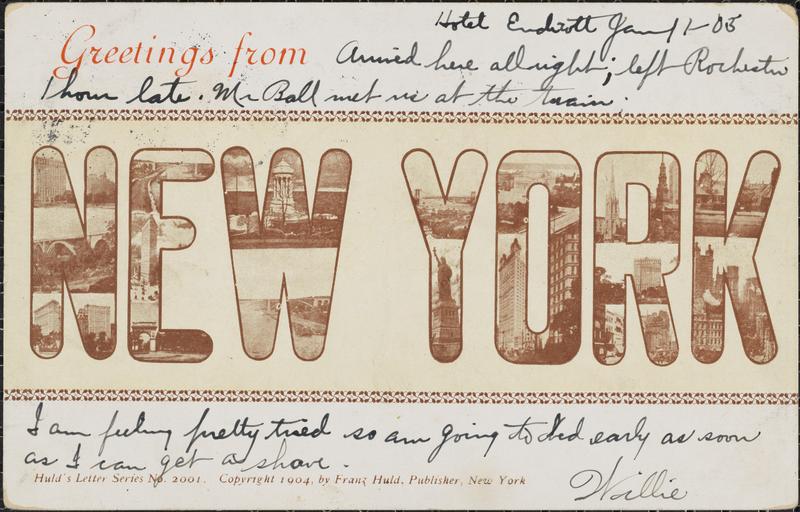 Hotel Endicott Jan 1-05
Greetings from Arrived here all right; left Rochester
1 hour late. Mr Ball met us at the train.
NEW YORK
I am feeling pretty tired so am going to bed early as soon
as I can get a shave.
Huld's Letter Series No. 2001. Copyright 1904, by Franz Huld, Publisher, New York
Willie